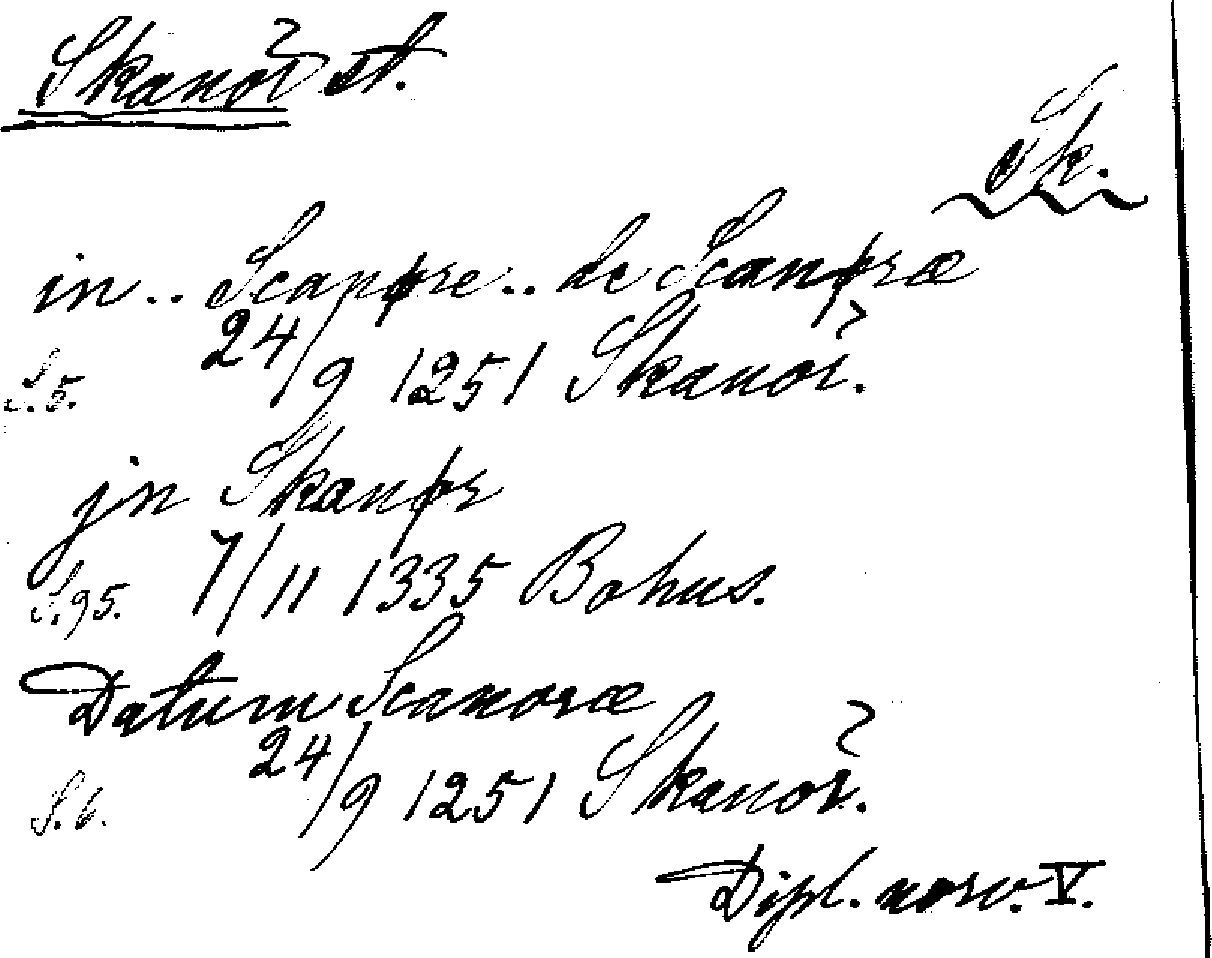 Skanör st.
Sk.
in.. Scanøre.. de Scanøræ
S.5. 24/9 1251 Skanör.
jn Skanør
S.95. 7/11 1335 Bohus.
Datum Scanoræ
S.6. 24/9 1251 Skanör.
Dipl. norv. V.